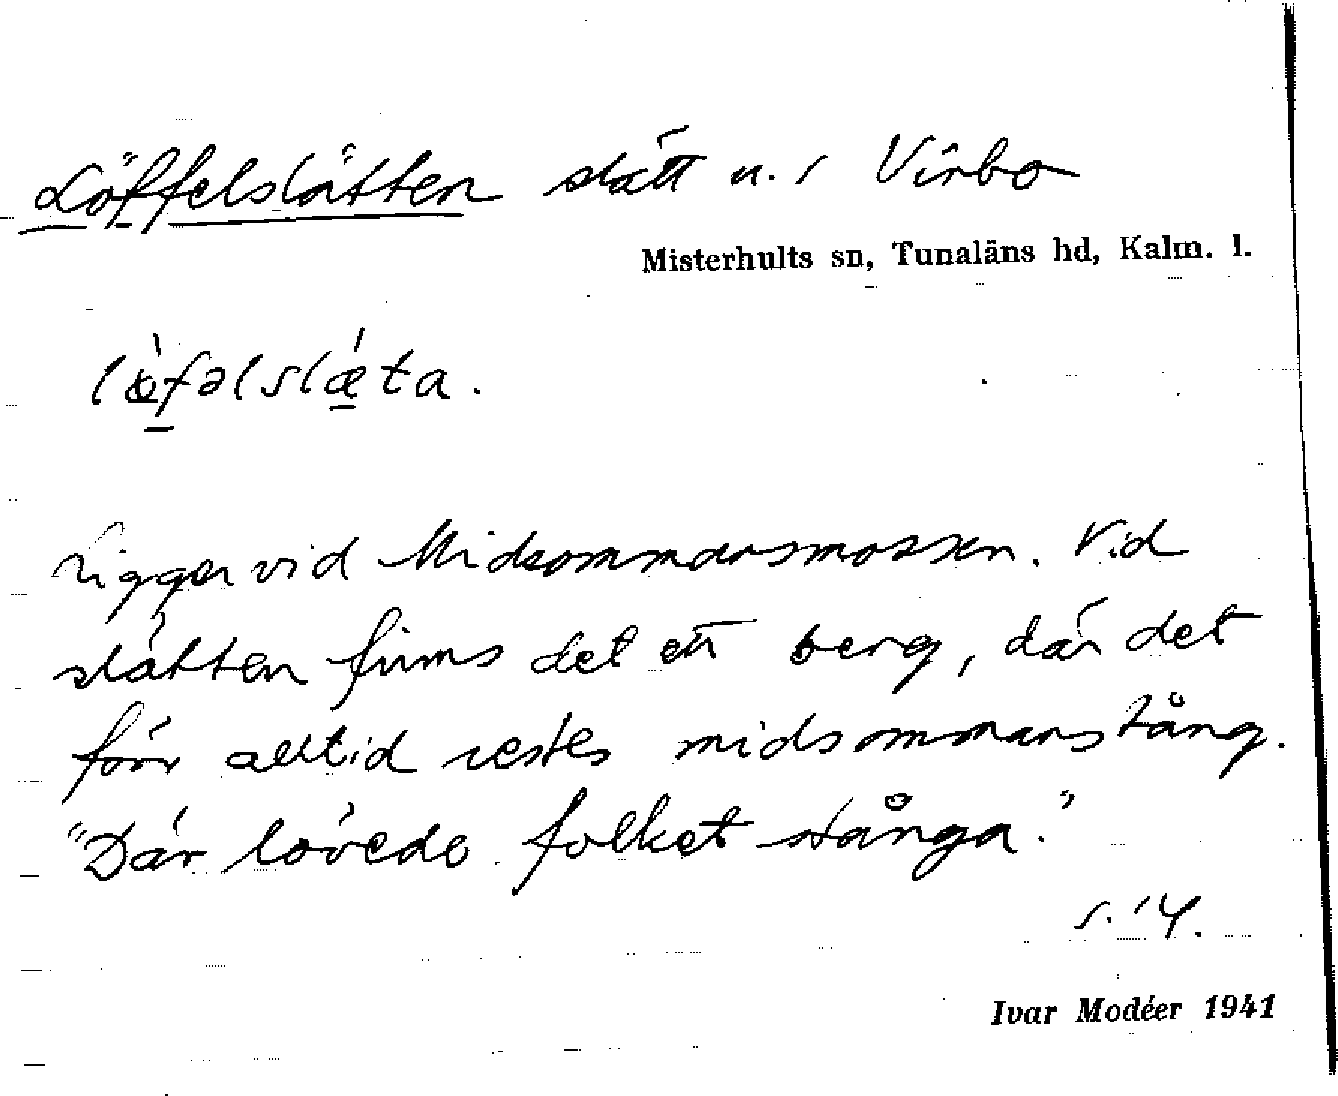 Löffelslätten slätt u. / Virbo
Misterhults sn, Tunaläns hd, Kalm. l.
lø̀fəlslǽta.
Ligger vid Midsommarsmossen. Vid
slätten finns det ett berg, där det
förr alltid restes midsommarstång.
"Där lövede folket stånga."
s. 14.
Ivar Modéer 1941